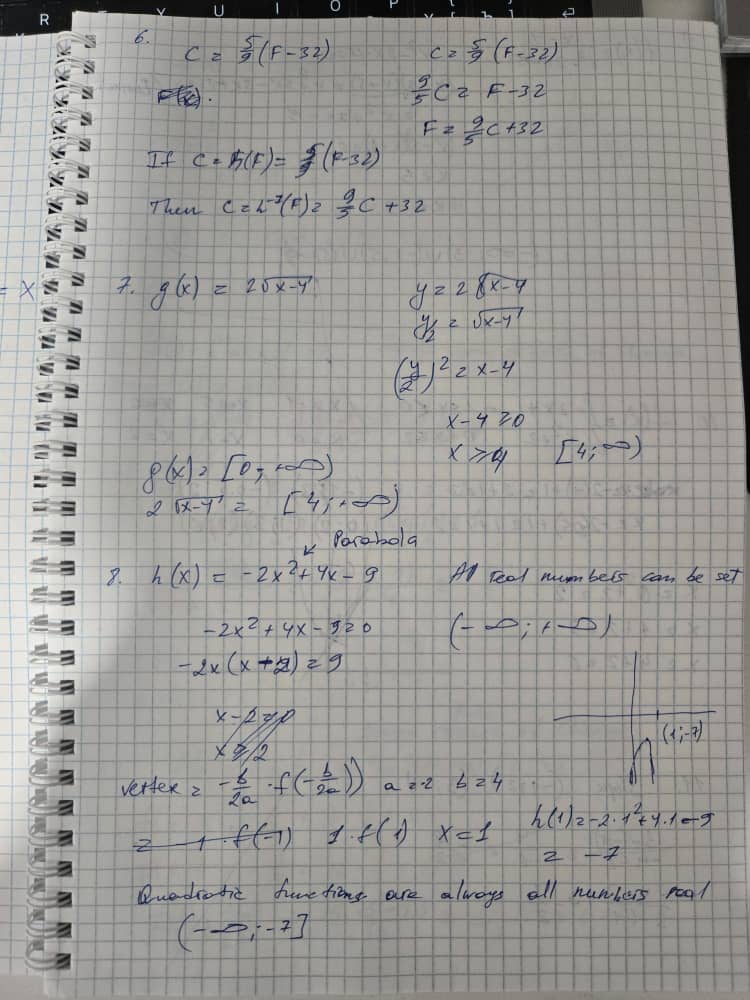 R Y U I O P
6.
C = 5/9 (F-32) C = 5/9 (F-32)
9/5 C = F-32
F = 9/5 C + 32
If C = h(F) = 5/9 (F-32)
Then C = h⁻¹(F) = 9/5 C + 32
= x
7. g(x) = 2√x-4 y = 2√x-4
y/2 = √x-4
(y/2)² = x-4
x-4 ≥ 0
x ≥ 4 [4; ∞)
g(x) = [0; +∞)
2√x-4 = [4; +∞)
↙ Parabola
8. h(x) = -2x² + 4x - 9 All real numbers can be set
-2x² + 4x - 9 = 0 (-∞; +∞)
-2x(x-2) = 9
x-2=0
(1;-7)
vertex = -b/2a · f(-b/2a)) a=-2 b=4
= -1 · f(-1) 1 · f(1) x=1 h(1) = -2·1²+4·1-9
= -7
Quadratic functions are always all numbers real
(-∞; -7]